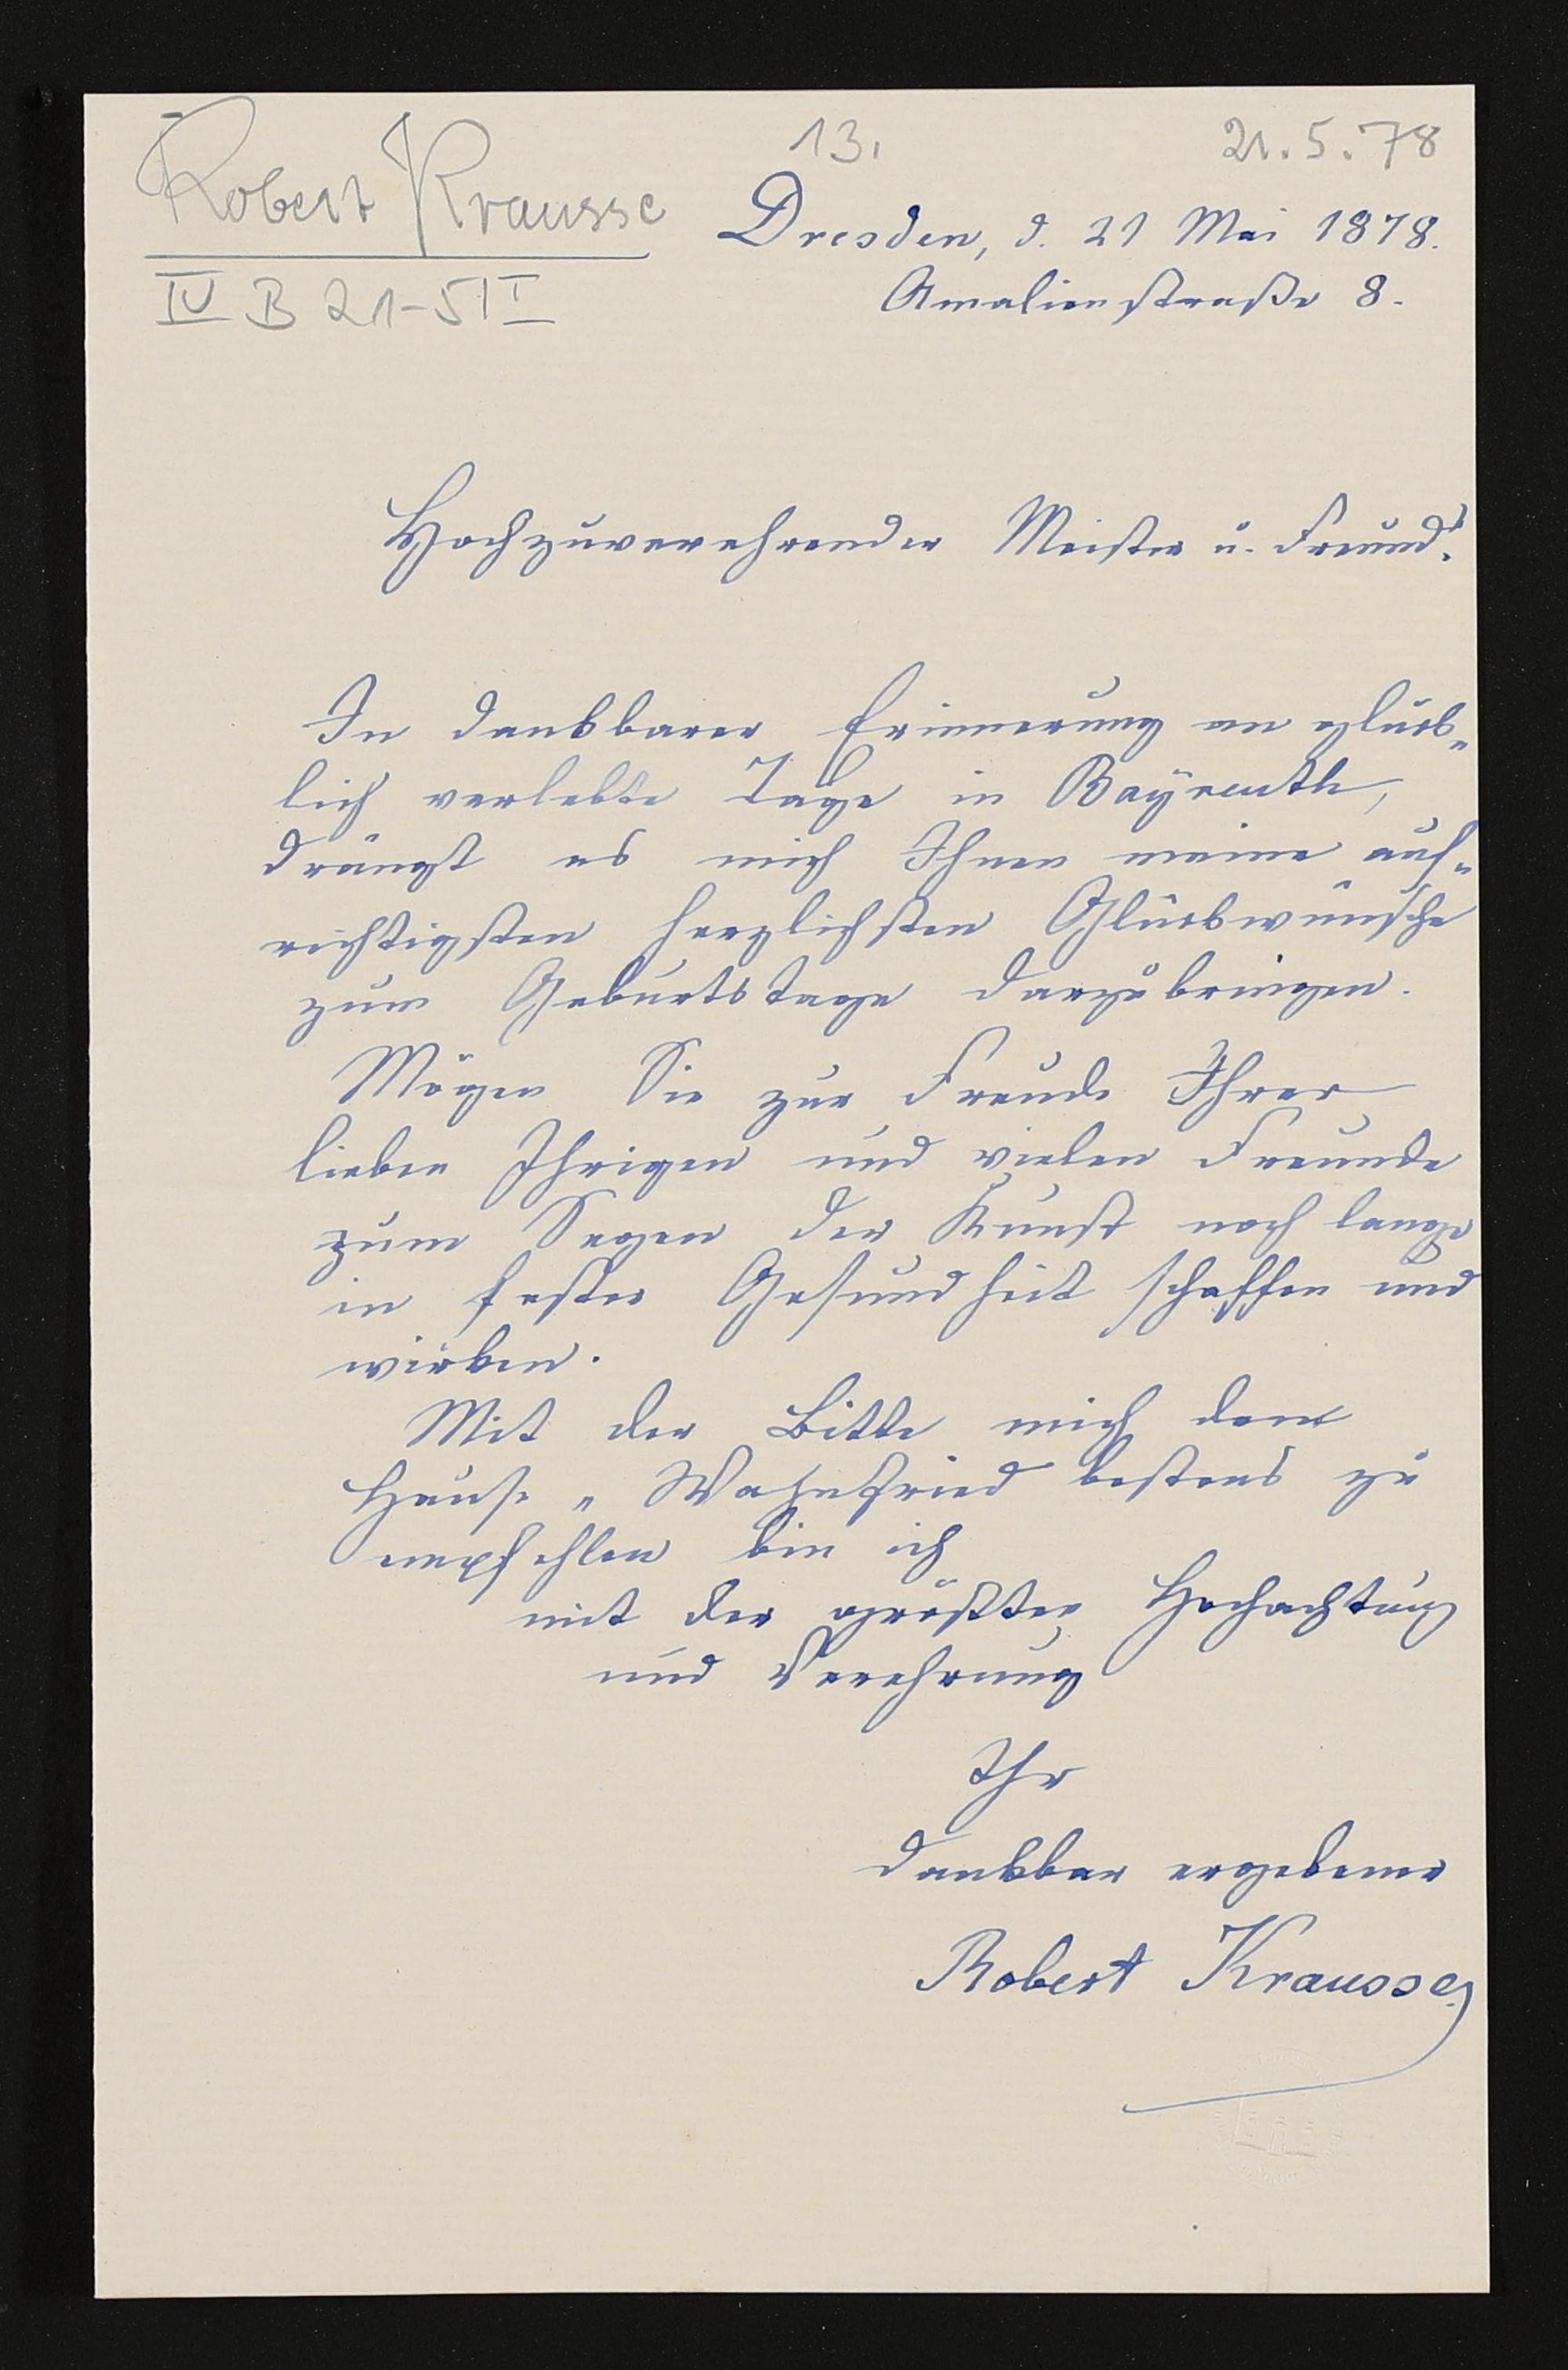 Robert Krausse
13.
21.5.78
IV B 21-5 I
Dresden, d. 21 Mai 1878.
Amalienstraße 8.
Hochzuverehrender Meister u. Freund!
In dankbarer Erinnerung an glück-
lich verlebte Tage in Bayreuth,
drängt es mich Ihnen meine auf-
richtigsten herzlichsten Glückwünsche
zum Geburtstage darzubringen.
Mögen Sie zur Freude Ihrer
lieben Ihrigen und vielen Freunde
zum Segen der Kunst noch lange
in fester Gesundheit schaffen und
wirken.
Mit der Bitte mich dem
Hause „Wahnfried bestens zu
empfehlen bin ich
mit der größten Hochachtung
und Verehrung
Ihr
dankbar ergebener
Robert Krausse